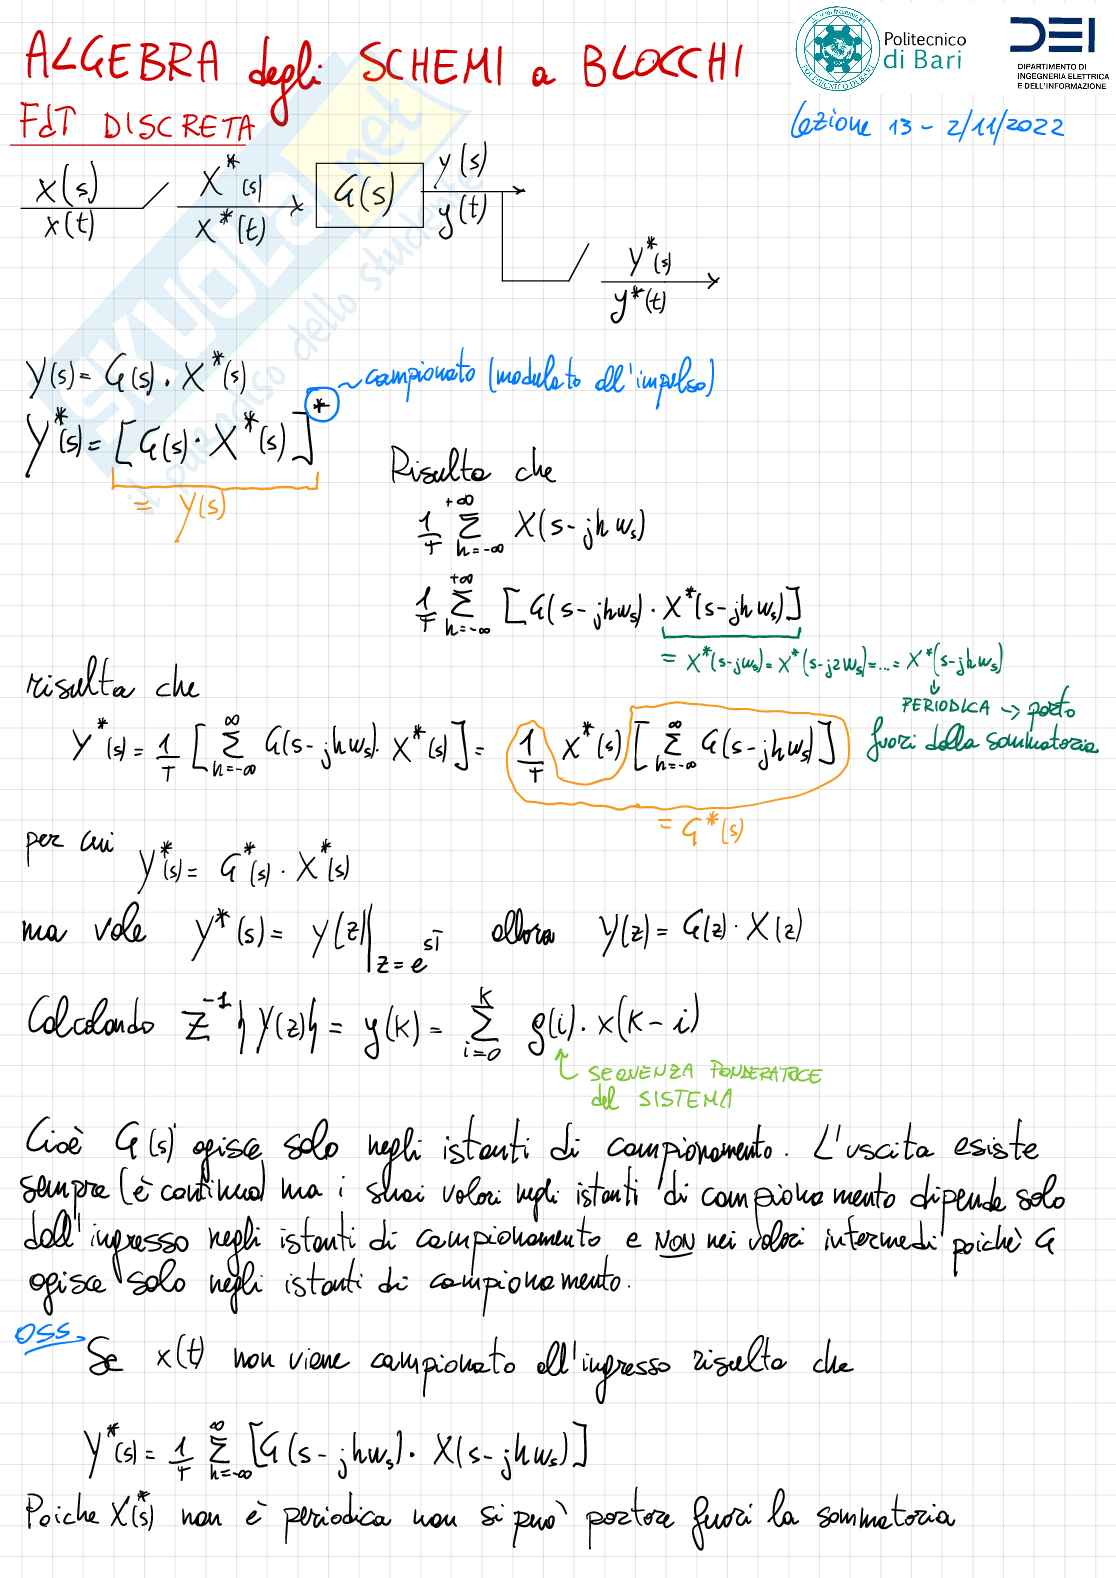 ALGEBRA degli SCHEMI a BLOCCHI
Politecnico di Bari
DEI
DIPARTIMENTO DI
INGEGNERIA ELETTRICA
E DELL'INFORMAZIONE
FdT DISCRETA
Lezione 13 - 2/11/2022
X(s) X*(s) G(s) Y(s)
x(t) x*(t) y(t)
Y*(s)
y*(t)
Y(s) = G(s) · X*(s)
~ campionato (modulato all'impulso)
Y*(s) = [G(s) · X*(s)]*
= Y(s)
Risulta che
1/T Σ_{h=-∞}^{+∞} X(s-jhws)
1/T Σ_{h=-∞}^{+∞} [G(s-jhws) · X*(s-jhws)]
= X*(s-jws) = X*(s-j2ws) = ... = X*(s-jhws)
PERIODICA -> porto
fuori dalla sommatoria
risulta che
Y*(s) = 1/T [Σ_{h=-∞}^{∞} G(s-jhws) · X*(s)] = 1/T X*(s) [Σ_{h=-∞}^{∞} G(s-jhws)]
= G*(s)
per cui Y*(s) = G*(s) · X*(s)
ma vale Y*(s) = Y(z)|_{z=e^{sT}} allora Y(z) = G(z) · X(z)
Calcolando Z^{-1}{Y(z)} = y(k) = Σ_{i=0}^{k} g(i) · x(k-i)
SEQUENZA PONDERATRICE
del SISTEMA
Cioè G(s) agisce solo negli istanti di campionamento. L'uscita esiste
sempre (è continua) ma i suoi valori negli istanti di campionamento dipende solo
dall'ingresso negli istanti di campionamento e NON nei valori intermedi poichè G
agisce solo negli istanti di campionamento.
OSS.
Se x(t) non viene campionato all'ingresso risulta che
Y*(s) = 1/T Σ_{h=-∞}^{∞} [G(s-jhws) · X(s-jhws)]
Poiche X*(s) non è periodica non si può portare fuori la sommatoria